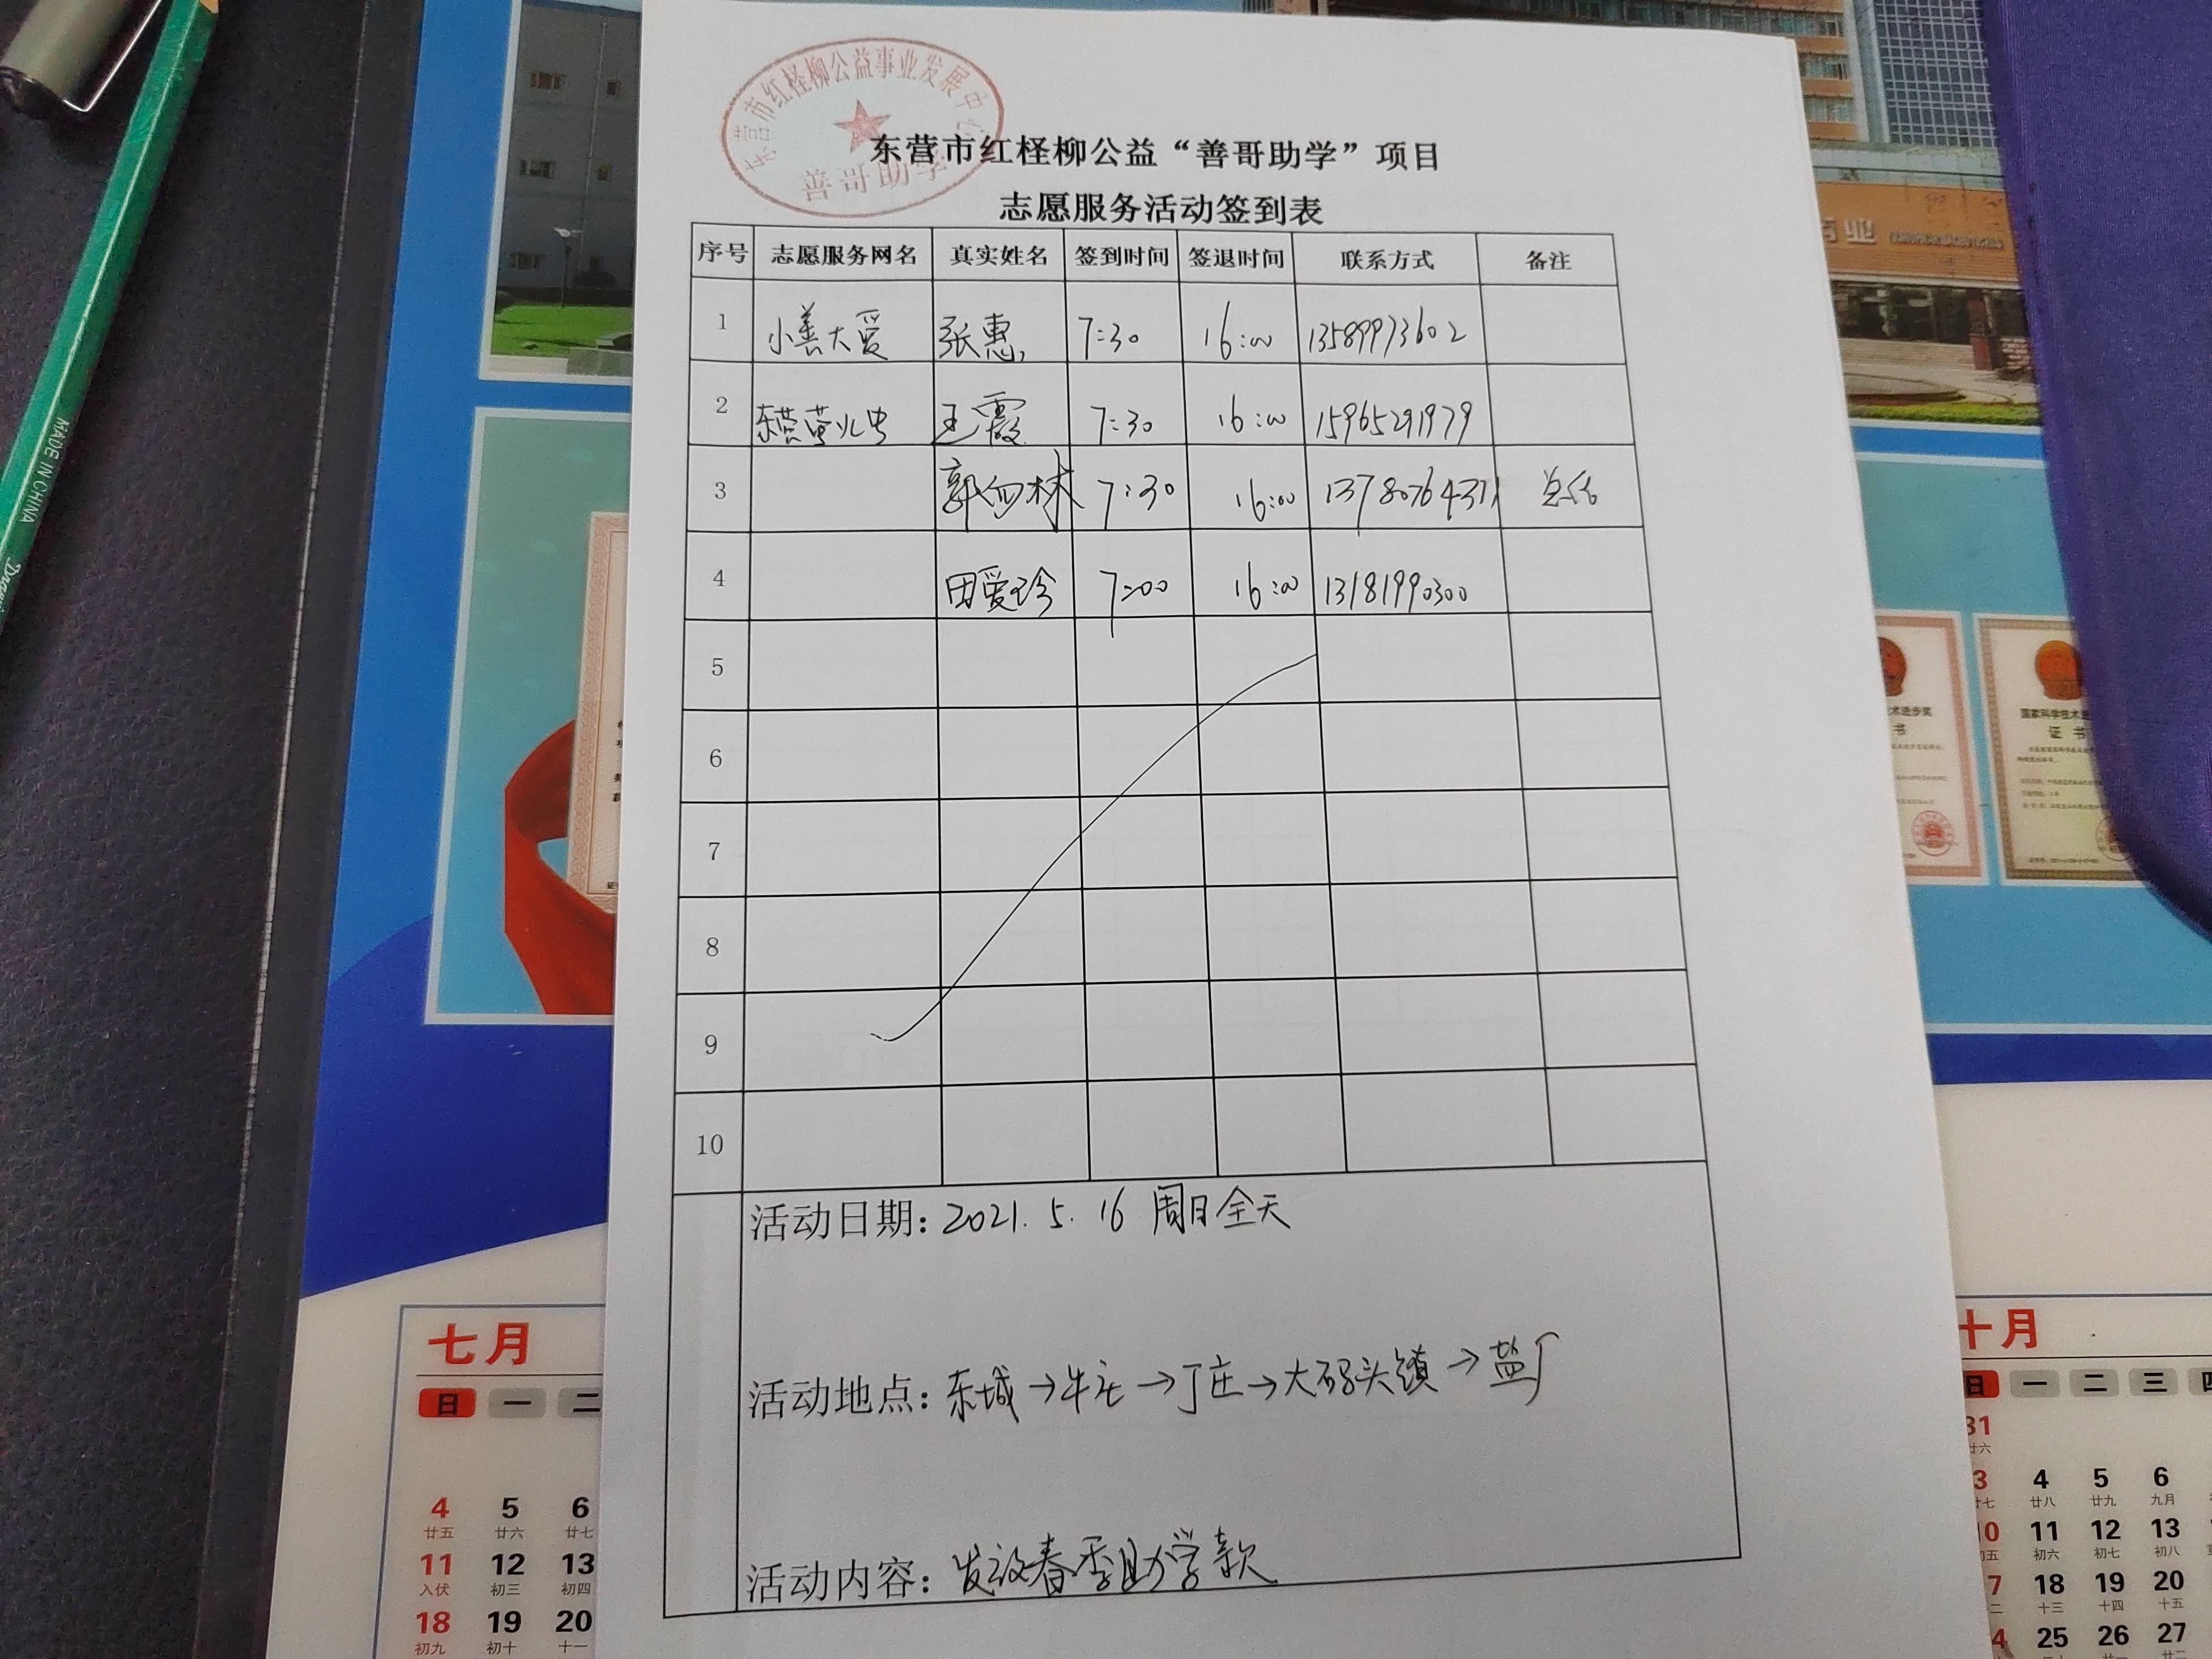 东营市红柽柳公益事业发展中心
善哥助学
东营市红柽柳公益“善哥助学”项目
志愿服务活动签到表
序号 志愿服务网名 真实姓名 签到时间 签退时间 联系方式 备注
1 小善大爱 张惠 7:30 16:00 13589973602
2 东营萤火虫 王霞 7:30 16:00 15965291979
3 郭向林 7:30 16:00 1378076437
4 田爱珍 7:00 16:00 13181990300
5
6
7
8
9
10
活动日期: 2021.5.16 周日全天
活动地点: 东城→牛庄→丁庄→大码头镇→盐厂
活动内容: 发放春季助学款
MADE IN CHINA
业
术进步奖
书
国家科学技术进
证书
七月
日 一 二
4 5 6
廿五 廿六 廿七
11 12 13
入伏 初三 初四
18 19 20
初九 初十 十一
十月
日 一 二 三 四
31
廿六
3 4 5 6
廿七 廿八 廿九 九月
10 11 12 13
初五 初六 初七 初八
7 18 19 20
二 十三 十四 十五
4 25 26 27